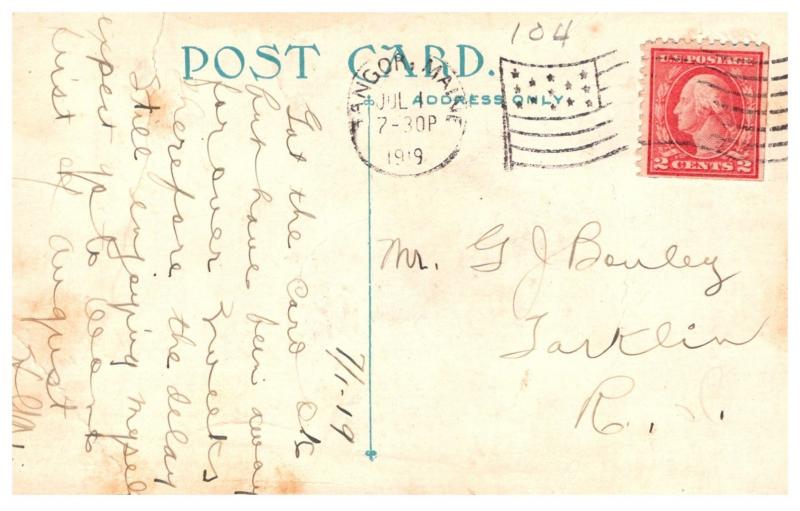 104
POST CARD.
ADDRESS ONLY
BANGOR, MAINE
JUL 1
7-30P
1919
U.S. POSTAGE
2 CENTS 2
Mr. G J Bouley
Tarklin
R. I.
7/1-19
Got the card OK
but have been away
for over 2 weeks
herefore the delay
Still enjoying myself
expect to go to
first of August